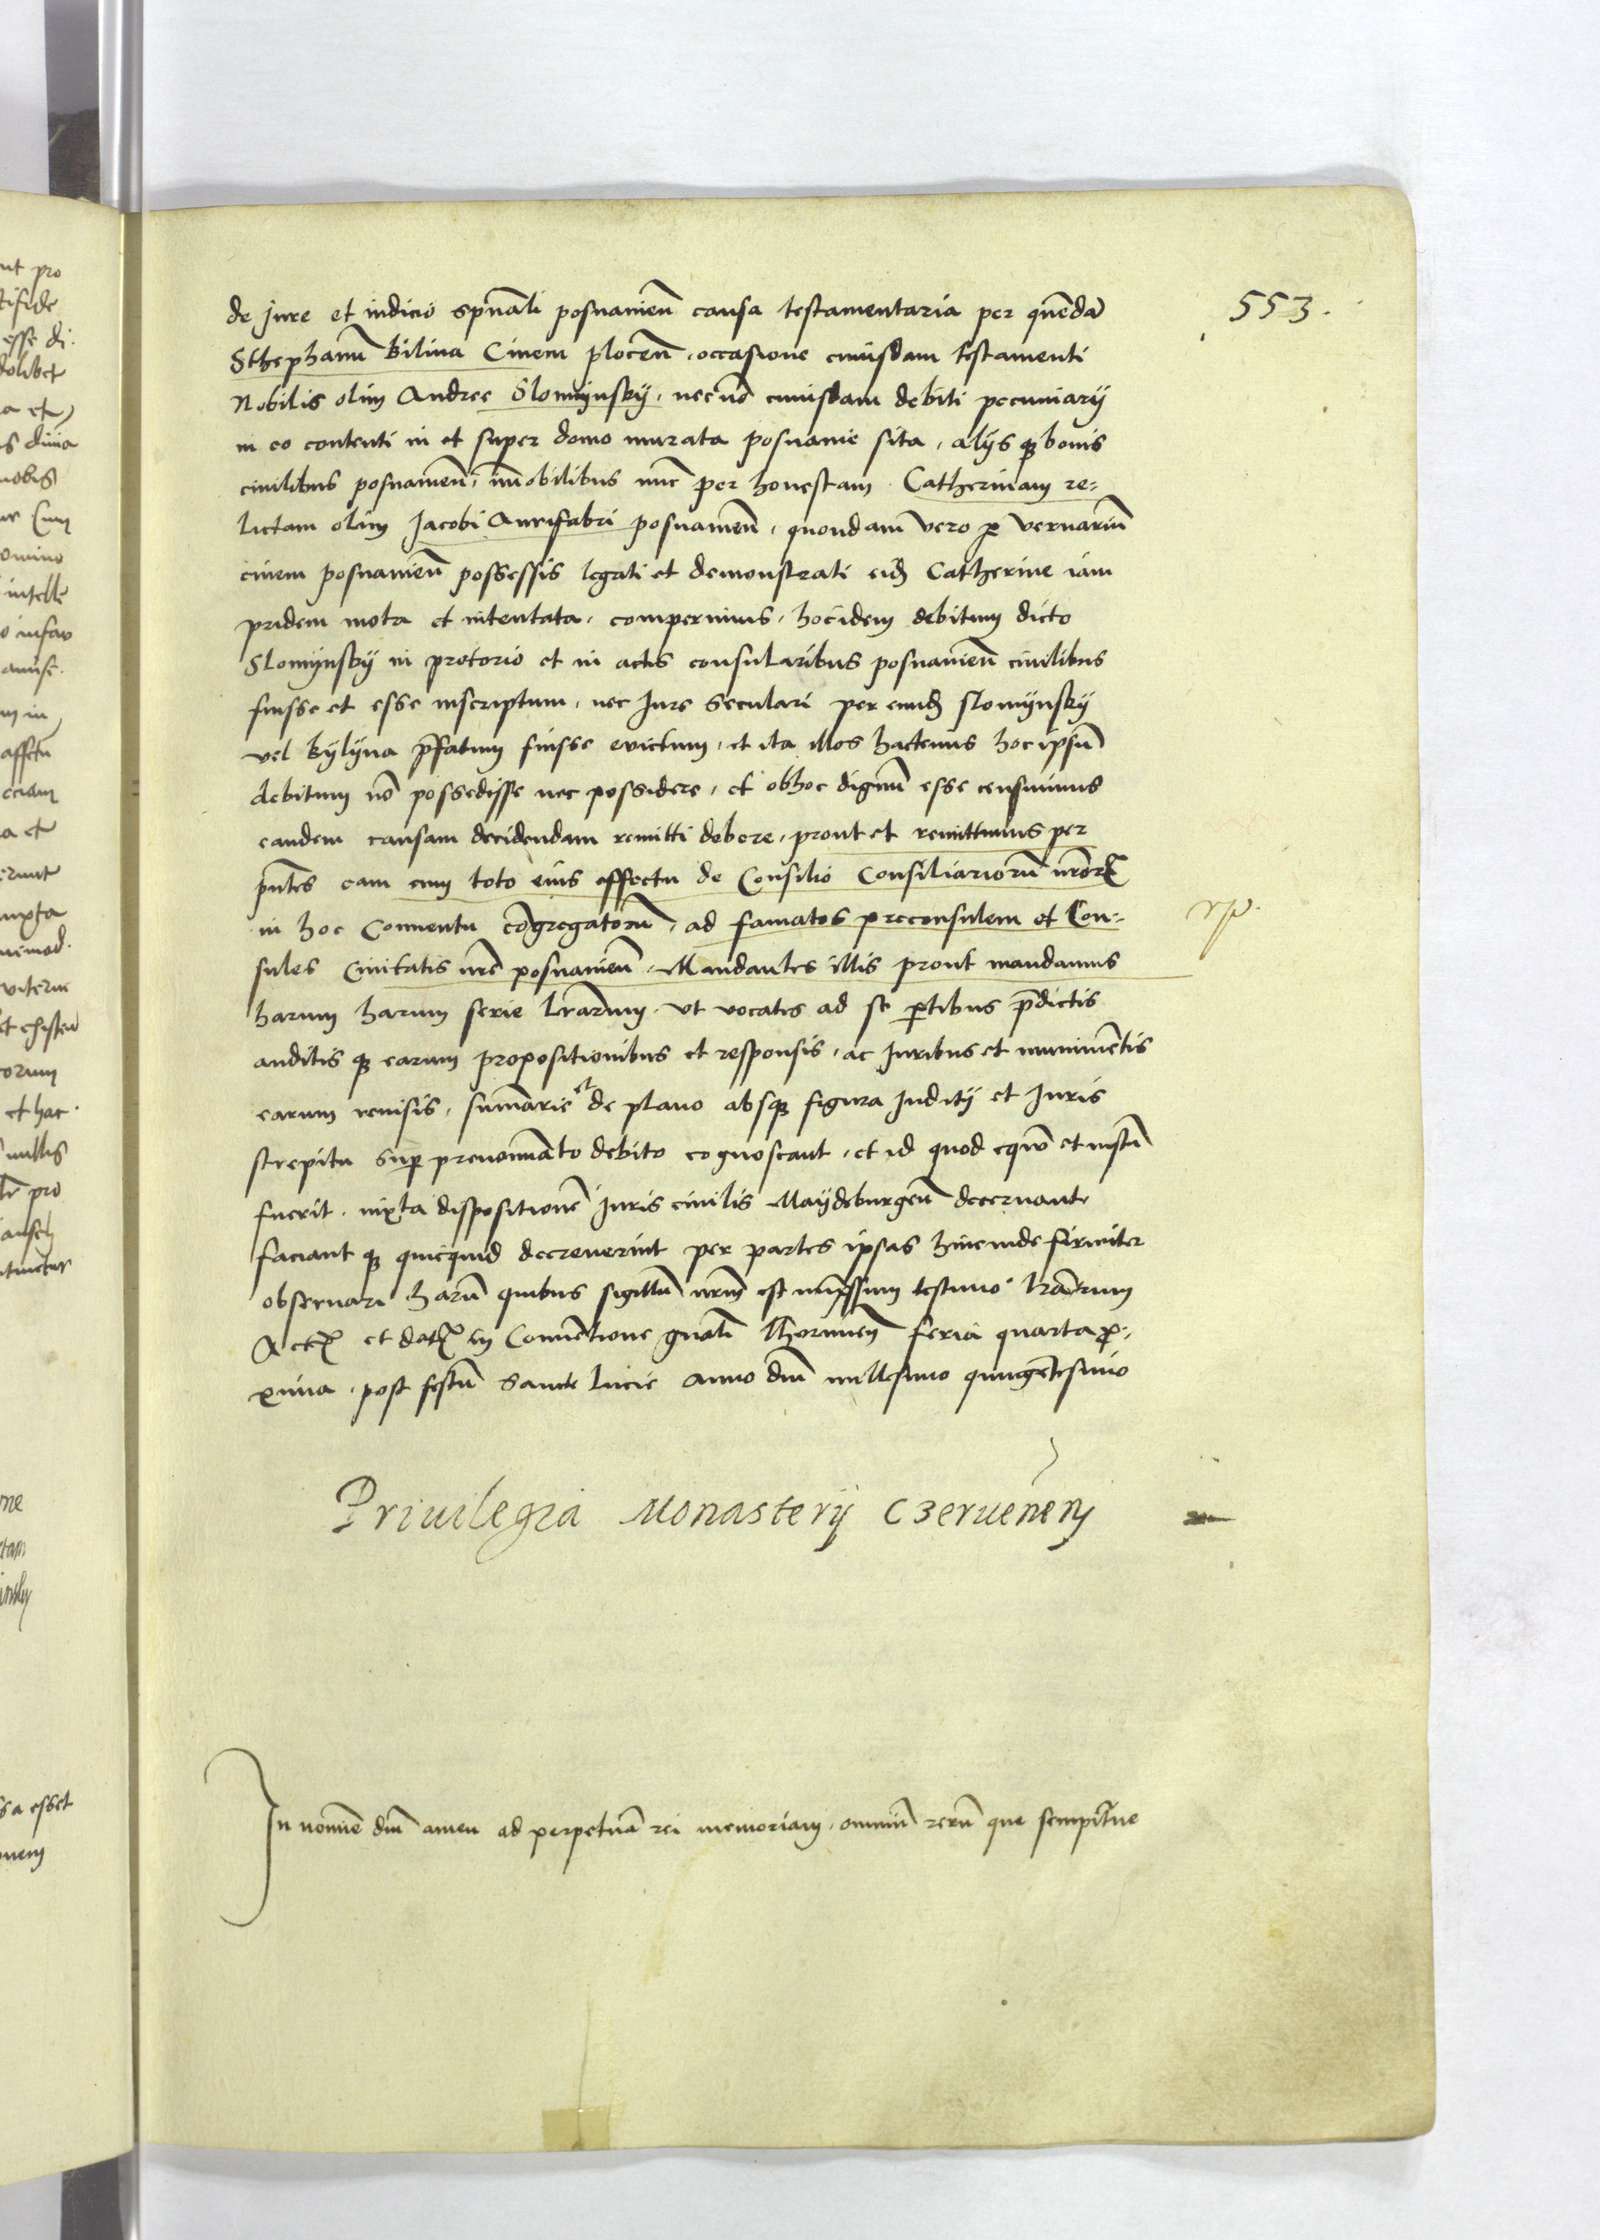 553.
de jure et iudicio spūali posnanieñ causa testamentaria per quēdā
Sthephanū Kilina Ciuem ploceñ, occasione cuiusdam testamenti
Nobilis olim Andree Slomijnskij, necnō cuiusdam debiti pecuniarij
in eo contenti in et super domo murata posnanie sita, alijs q₃ bonis
ciuilibus posnanieñ, īmobilibus nūc per honestam Catherinam re-
lictam olim Jacobi Aurifabri posnanieñ, quondam vero p vernariū
ciuem posnanieñ possessis legati et demonstrati eid₃ Catherine iam
pridem mota et intentata, comperimus, hocidem debitum dicto
Slomijnskij in pretorio et in actis consularibus posnanieñ ciuilibus
fuisse et esse inscriptum, nec Jure seculari per eund₃ slomijnskij
vel kijlijna p̄fatum fuisse euictum, et ita illos hactenus hoc ipsū
debitum nō possedisse nec possidere, et obhoc dignū esse censuimus
eandem causam decidendam remitti debere, prout et remittimus per
pn̄tes eam cum toto eius effectu de Consilio Consiliariorū nr̄oꝝ
in hoc Conuentu cōgregatorū, ad famatos preconsulem et Con-
sules Ciuitatis nr̄e posnanieñ, Mandantes illis prout mandamus
harum harum serie lr̄arum, vt vocatis ad se ptibus p̄dictis
auditis q₃ earum propositionibus et responsis, ac Juribus et munimētis
earum reuisis, sum̄arie et de plano absq₃ figura Juditij et Juris
strepitu Sup prenoīnato debito cognoscant, et id quod equū et iustū
fuerit, iuxta dispositionē Juris ciuilis Maijdeburgeñ decernant
faciant q₃ quicquid decreuerint per partes ipsas hincinde firmiter
obseruari harū quibus sigillū nr̄m est imp̄ssum testimō lr̄arum
Actꝝ et datꝝ in Conuētione gn̄ali Thorunieñ feria quarta pro-
xima, post festū Sancte lucie anno dn̄i millesimo quingētesimo
Priuilegia Monasterij Czerueneñ
In nomīe dn̄i amen ad perpetuā rei memoriam, omniū rerū que sempit̄ne